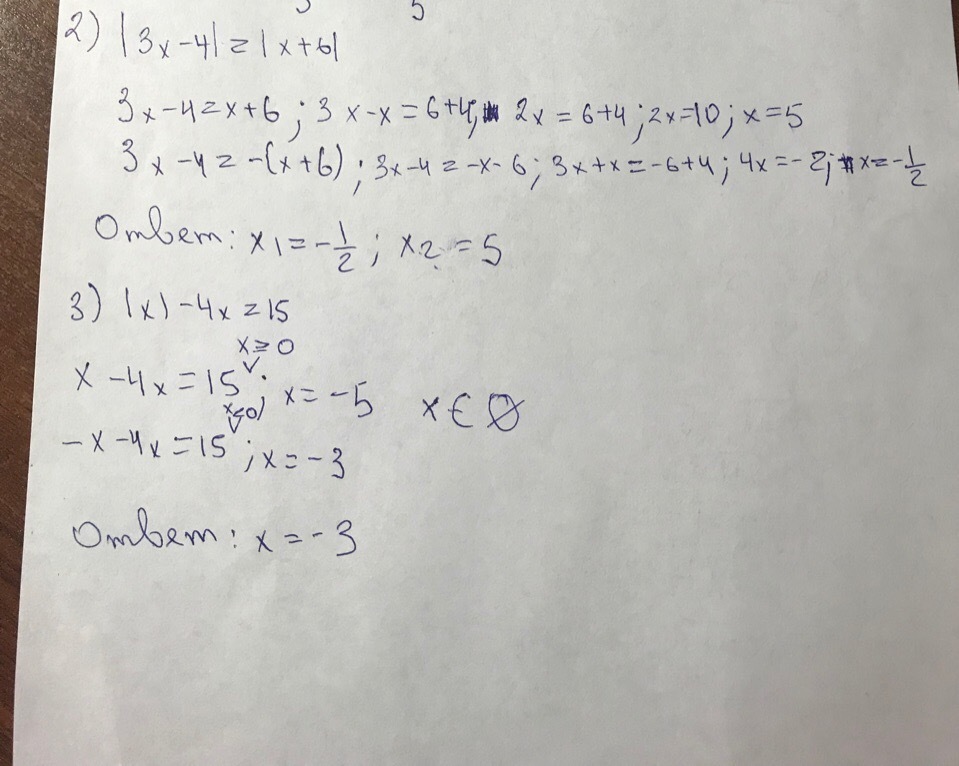 5
2) |3x-4|=|x+6|
3x-4=x+6; 3x-x=6+4; 2x=6+4; 2x=10; x=5
3x-4=-(x+6); 3x-4=-x-6; 3x+x=-6+4; 4x=-2; x=-1/2
Ответ: x1=-1/2; x2=5
3) |x|-4x=15
x≥0
x-4x=15; x=-5 x∈∅
x<0
-x-4x=15; x=-3
Ответ: x=-3